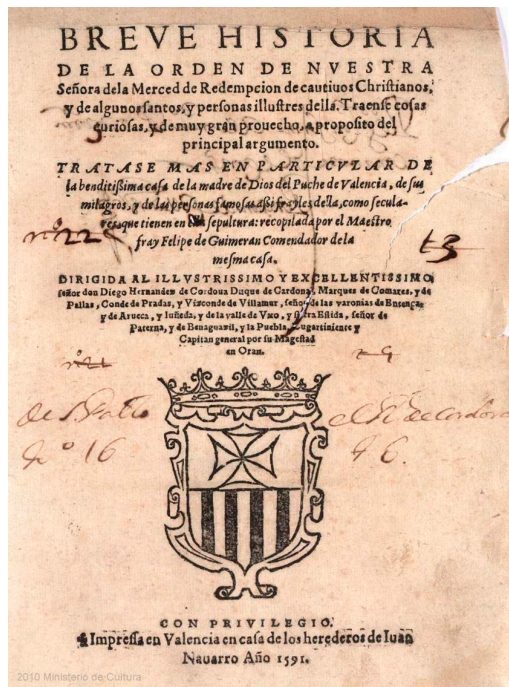 BREVE HISTORIA
DE LA ORDEN DE NVESTRA
Señora dela Merced de Redempcion de cautiuos Christianos,
y de algunos santos, y personas illustres della. Traense cosas
curiosas, y de muy gran prouecho, a proposito del
principal argumento.
TRATASE MAS EN PARTICVLAR DE
la benditißima casa de la madre de Dios del Puche de Valencia, de sus
milagros, y de las personas famosas aßi frayles della, como secula-
res que tienen en sepultura: recopilada por el Maestro
fray Felipe de Guimeran Comendador dela
mesma casa.
nº. 22
t3
DIRIGIDA AL ILLVSTRISSIMO Y EXCELLENTISSIMO
señor don Diego Hernandez de Cordoua Duque de Cardona, Marques de Comares, y de
Pallas, Conde de Pradas, y Vizconde de Villamur, señor de las varonias de Entença,
y de Arueca, y Iuñeda, y de la valle de Vxo, y sierra Eslida, señor de
Paterna, y de Benaguazil, y la Puebla, Lugartiniente y
Capitan general por su Magestad
en Oran.
nº 16
6.
CON PRIVILEGIO.
Impressa en Valencia en casa de los herederos de Iuan
Nauarro Año 1591.
2010 Ministerio de Cultura